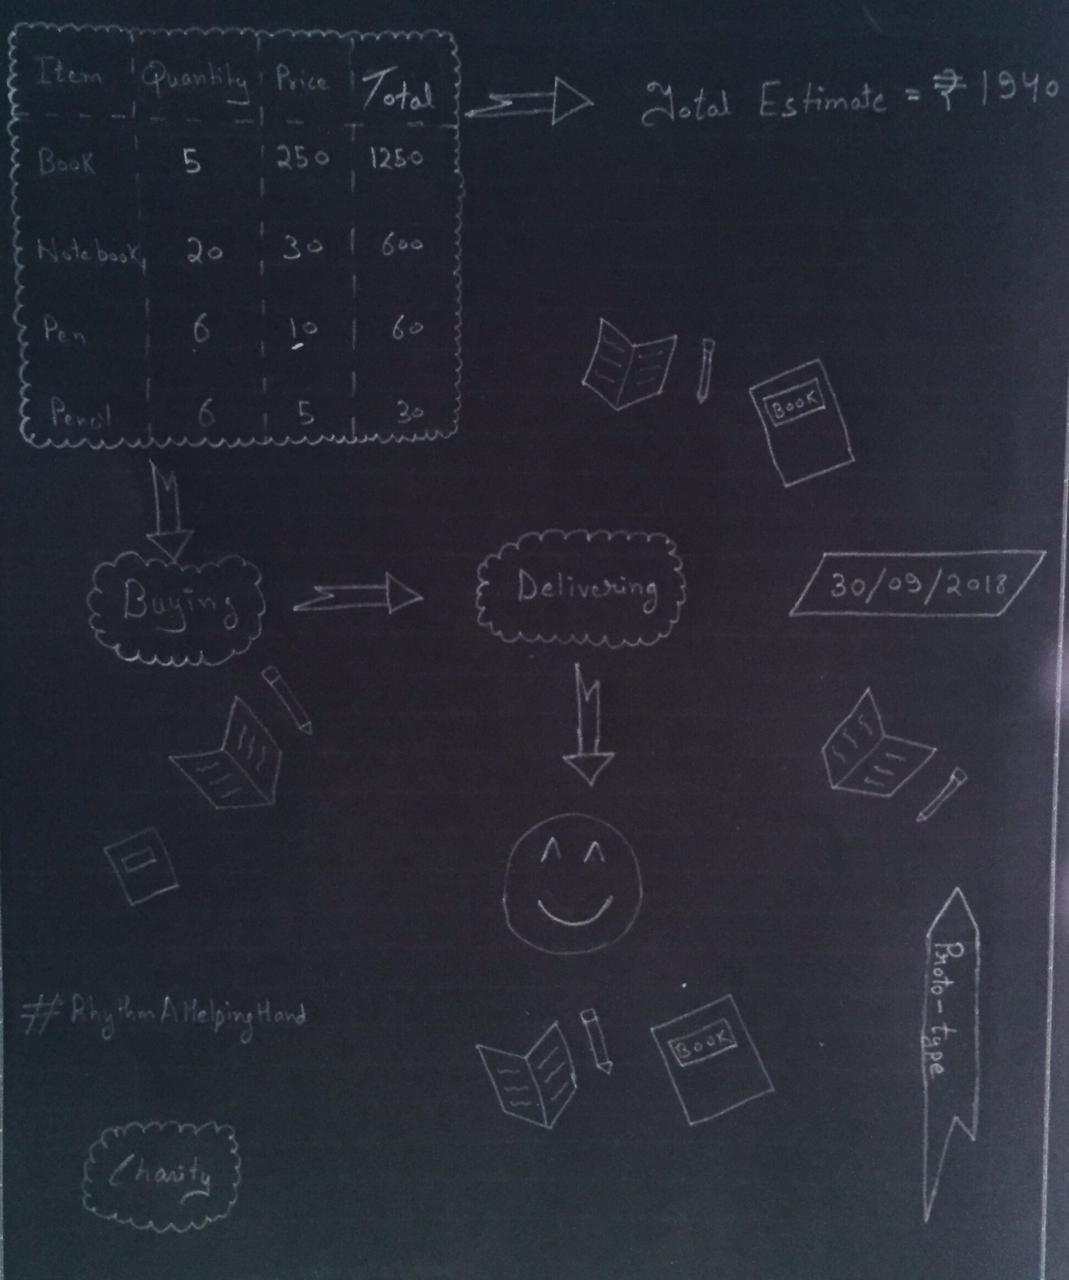 Item Quantity Price Total
Book 5 250 1250
Notebook 20 30 600
Pen 6 10 60
Pencil 6 5 30
Total Estimate = ₹ 1940
BOOK
Buying
Delivering
30/09/2018
Proto-type
#RhythmAHelpingHand
BOOK
Charity